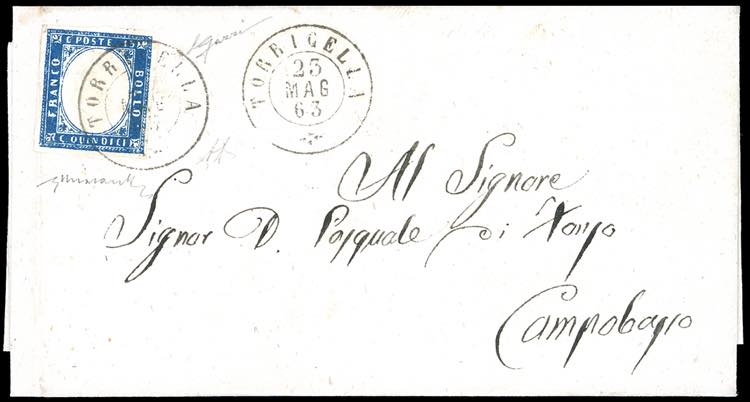 C POSTE 15
FRANCO
BOLLO
C QUINDICI
TORRICELLA
TORRICELLA
23
MAG
63
Al Signore
Signor D. Pasquale di
Campobasso